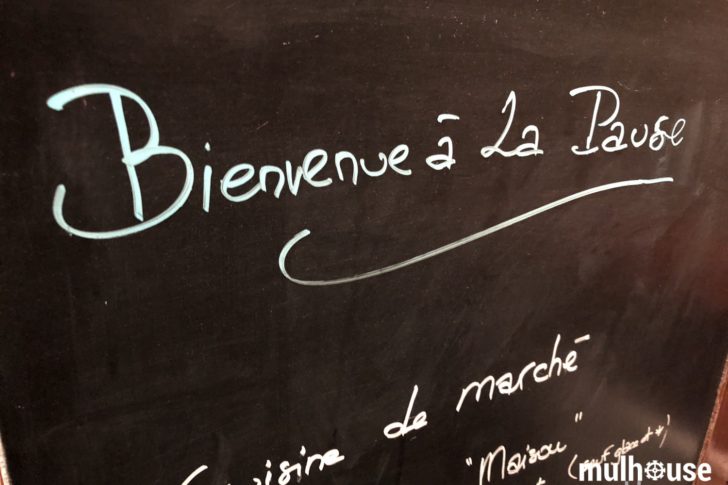 Bienvenue à La Pause
Cuisine de marché
"Maison"
(sauf glace et *)
mulhouse